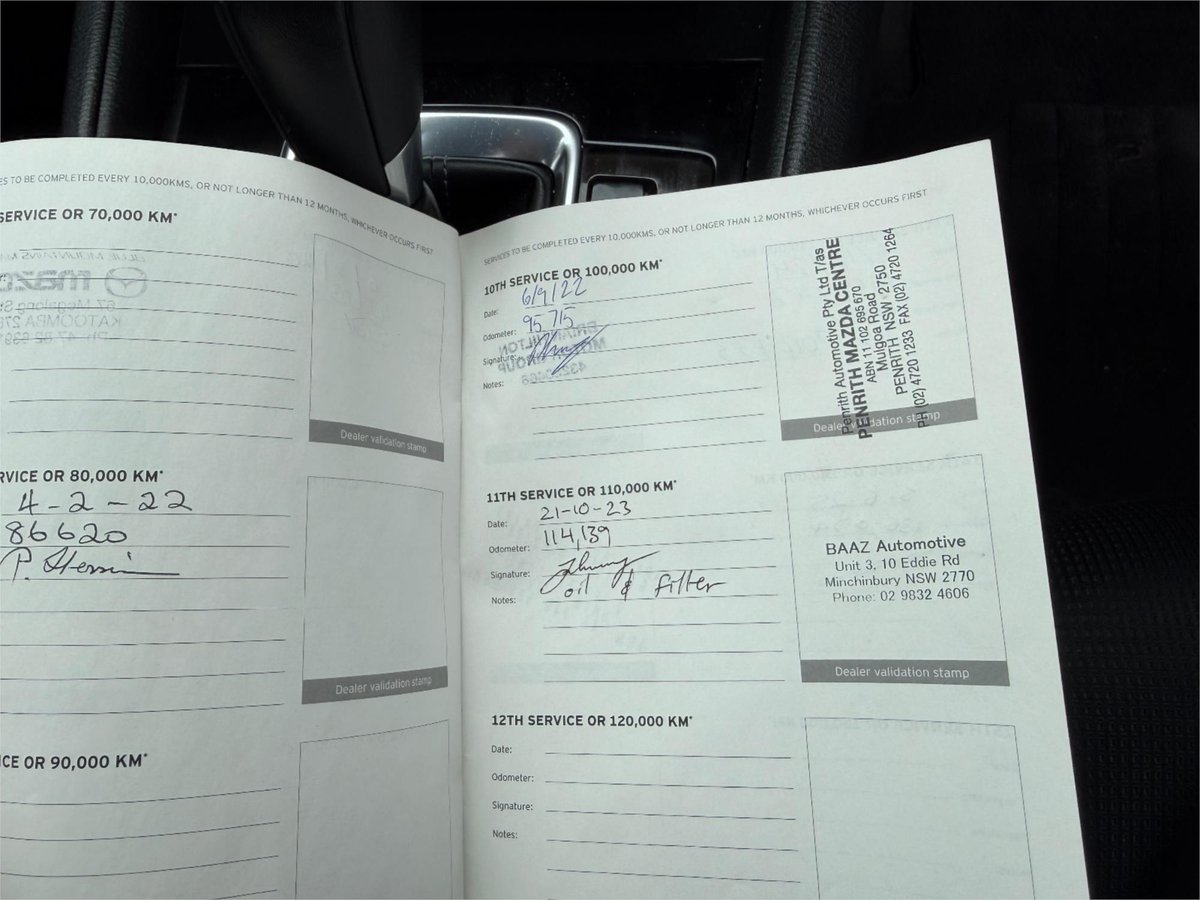 ES TO BE COMPLETED EVERY 10,000KMS, OR NOT LONGER THAN 12 MONTHS, WHICHEVER OCCURS FIRST
SERVICE OR 70,000 KM*
Dealer validation stamp
RVICE OR 80,000 KM*
4-2-22
86620
Dealer validation stamp
ICE OR 90,000 KM*
SERVICES TO BE COMPLETED EVERY 10,000KMS, OR NOT LONGER THAN 12 MONTHS, WHICHEVER OCCURS FIRST
10TH SERVICE OR 100,000 KM*
Date: 6/9/22
Odometer: 95 715
Signature:
Notes:
Penrith Automotive Pty Ltd T/as
PENRITH MAZDA CENTRE
ABN 11 102 695 670
Mulgoa Road
PENRITH NSW 2750
PH (02) 4720 1233 FAX (02) 4720 1264
Dealer validation stamp
11TH SERVICE OR 110,000 KM*
Date: 21-10-23
Odometer: 114,139
Signature:
Notes: oil & filter
BAAZ Automotive
Unit 3, 10 Eddie Rd
Minchinbury NSW 2770
Phone: 02 9832 4606
Dealer validation stamp
12TH SERVICE OR 120,000 KM*
Date:
Odometer:
Signature:
Notes: